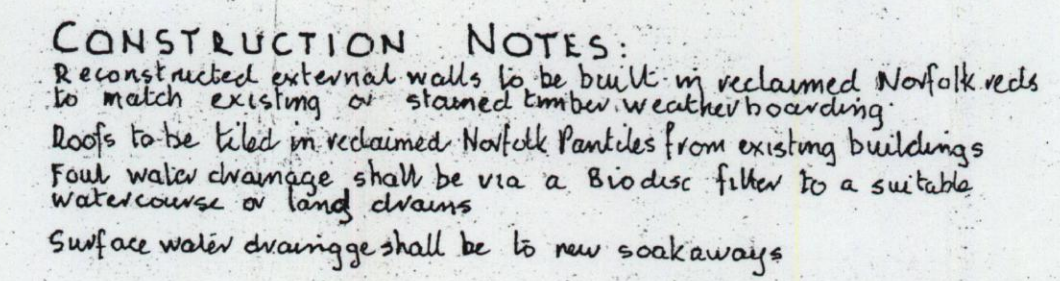 CONSTRUCTION NOTES:
Reconstructed external walls to be built in reclaimed Norfolk reds
to match existing or stained timber weatherboarding.
Roofs to be tiled in reclaimed Norfolk Pantiles from existing buildings
Foul water drainage shall be via a Biodisc filter to a suitable
watercourse or land drains
Surface water drainagge shall be to new soakaways